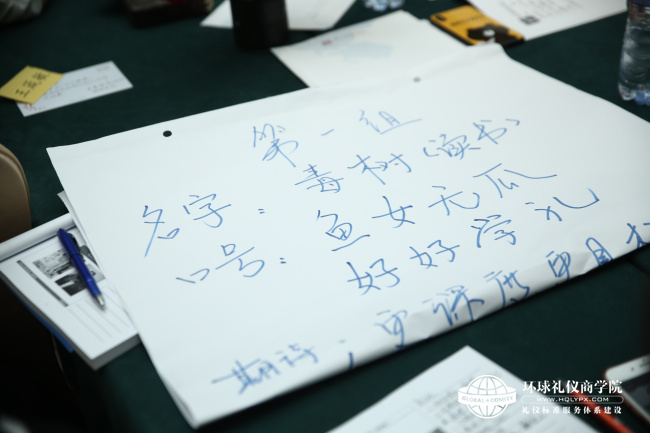 第一组
名字：毒树（读书）
口号：鱼女无瓜
好好学礼
期待：
环球礼仪商学院
GLOBAL COMITY
WWW.HQLYPX.COM
礼仪标准服务体系建设